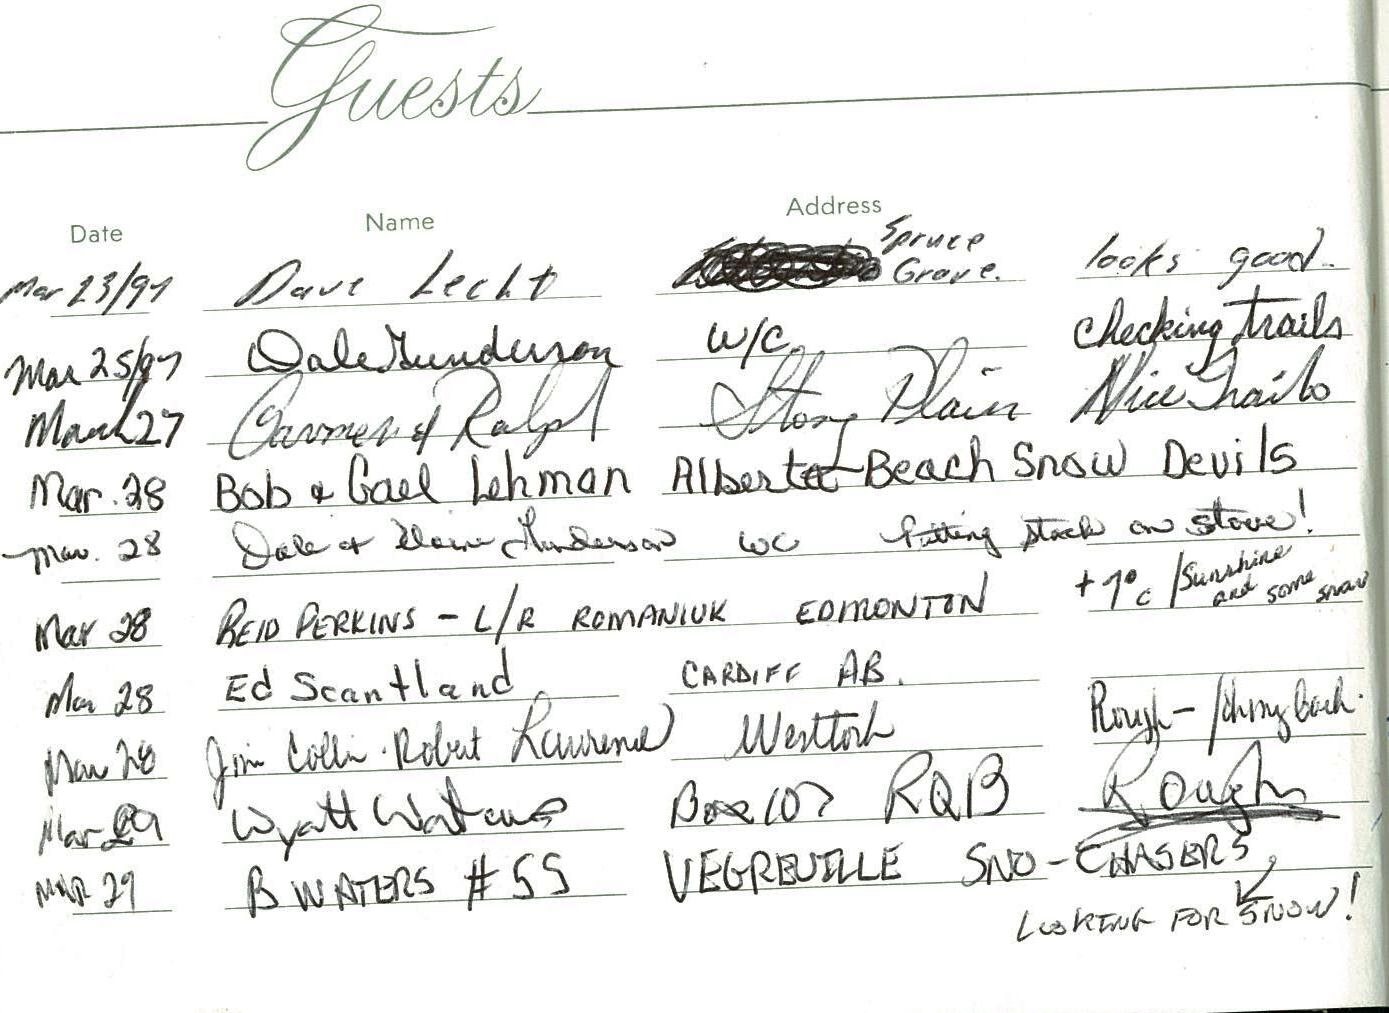 Guests
Date Name Address
Mar 23/97 Dave Lecht Spruce Grove. looks good.
Mar 25/97 Dale Gunderson W/C checking trails
March 27 & Ralph Stony Plain Nice Trails
Mar. 28 Bob & Gael Lehman Alberta Beach Snow Devils
Mar. 28 Dale & Elaine Gunderson WC Putting stack on stove!
Mar 28 REID PERKINS - L/R ROMANIUK EDMONTON +7°c /Sunshine and some snow
Mar 28 Ed Scantland CARDIFF AB.
Mar 28 Jim Collin. Robert Lawrence Westlock Rough - back.
Mar 29 Wyatt Box 107 RQB Rough
MAR 29 B WATERS #55 VEGREVILLE SNO-CHASERS,
LOOKING FOR SNOW!